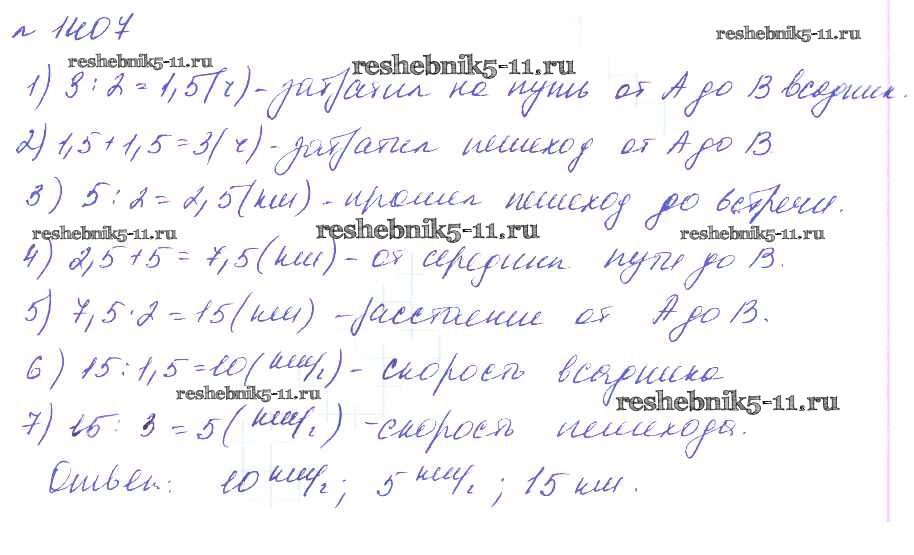 № 1407
reshebnik5-11.ru
reshebnik5-11.ru
reshebnik5-11.ru
1) 3 : 2 = 1,5 (ч) - затратил на путь от А до В всадник.
2) 1,5 + 1,5 = 3 (ч) - затратил пешеход от А до В
3) 5 : 2 = 2,5 (км) - прошел пешеход до встречи.
reshebnik5-11.ru
reshebnik5-11.ru
reshebnik5-11.ru
4) 2,5 + 5 = 7,5 (км) - от середины пути до В.
5) 7,5 · 2 = 15 (км) - расстояние от А до В.
6) 15 : 1,5 = 10 (км/г) - скорость всадника
reshebnik5-11.ru
reshebnik5-11.ru
7) 15 : 3 = 5 (км/г) - скорость пешехода.
Ответ: 10 км/г ; 5 км/г ; 15 км.